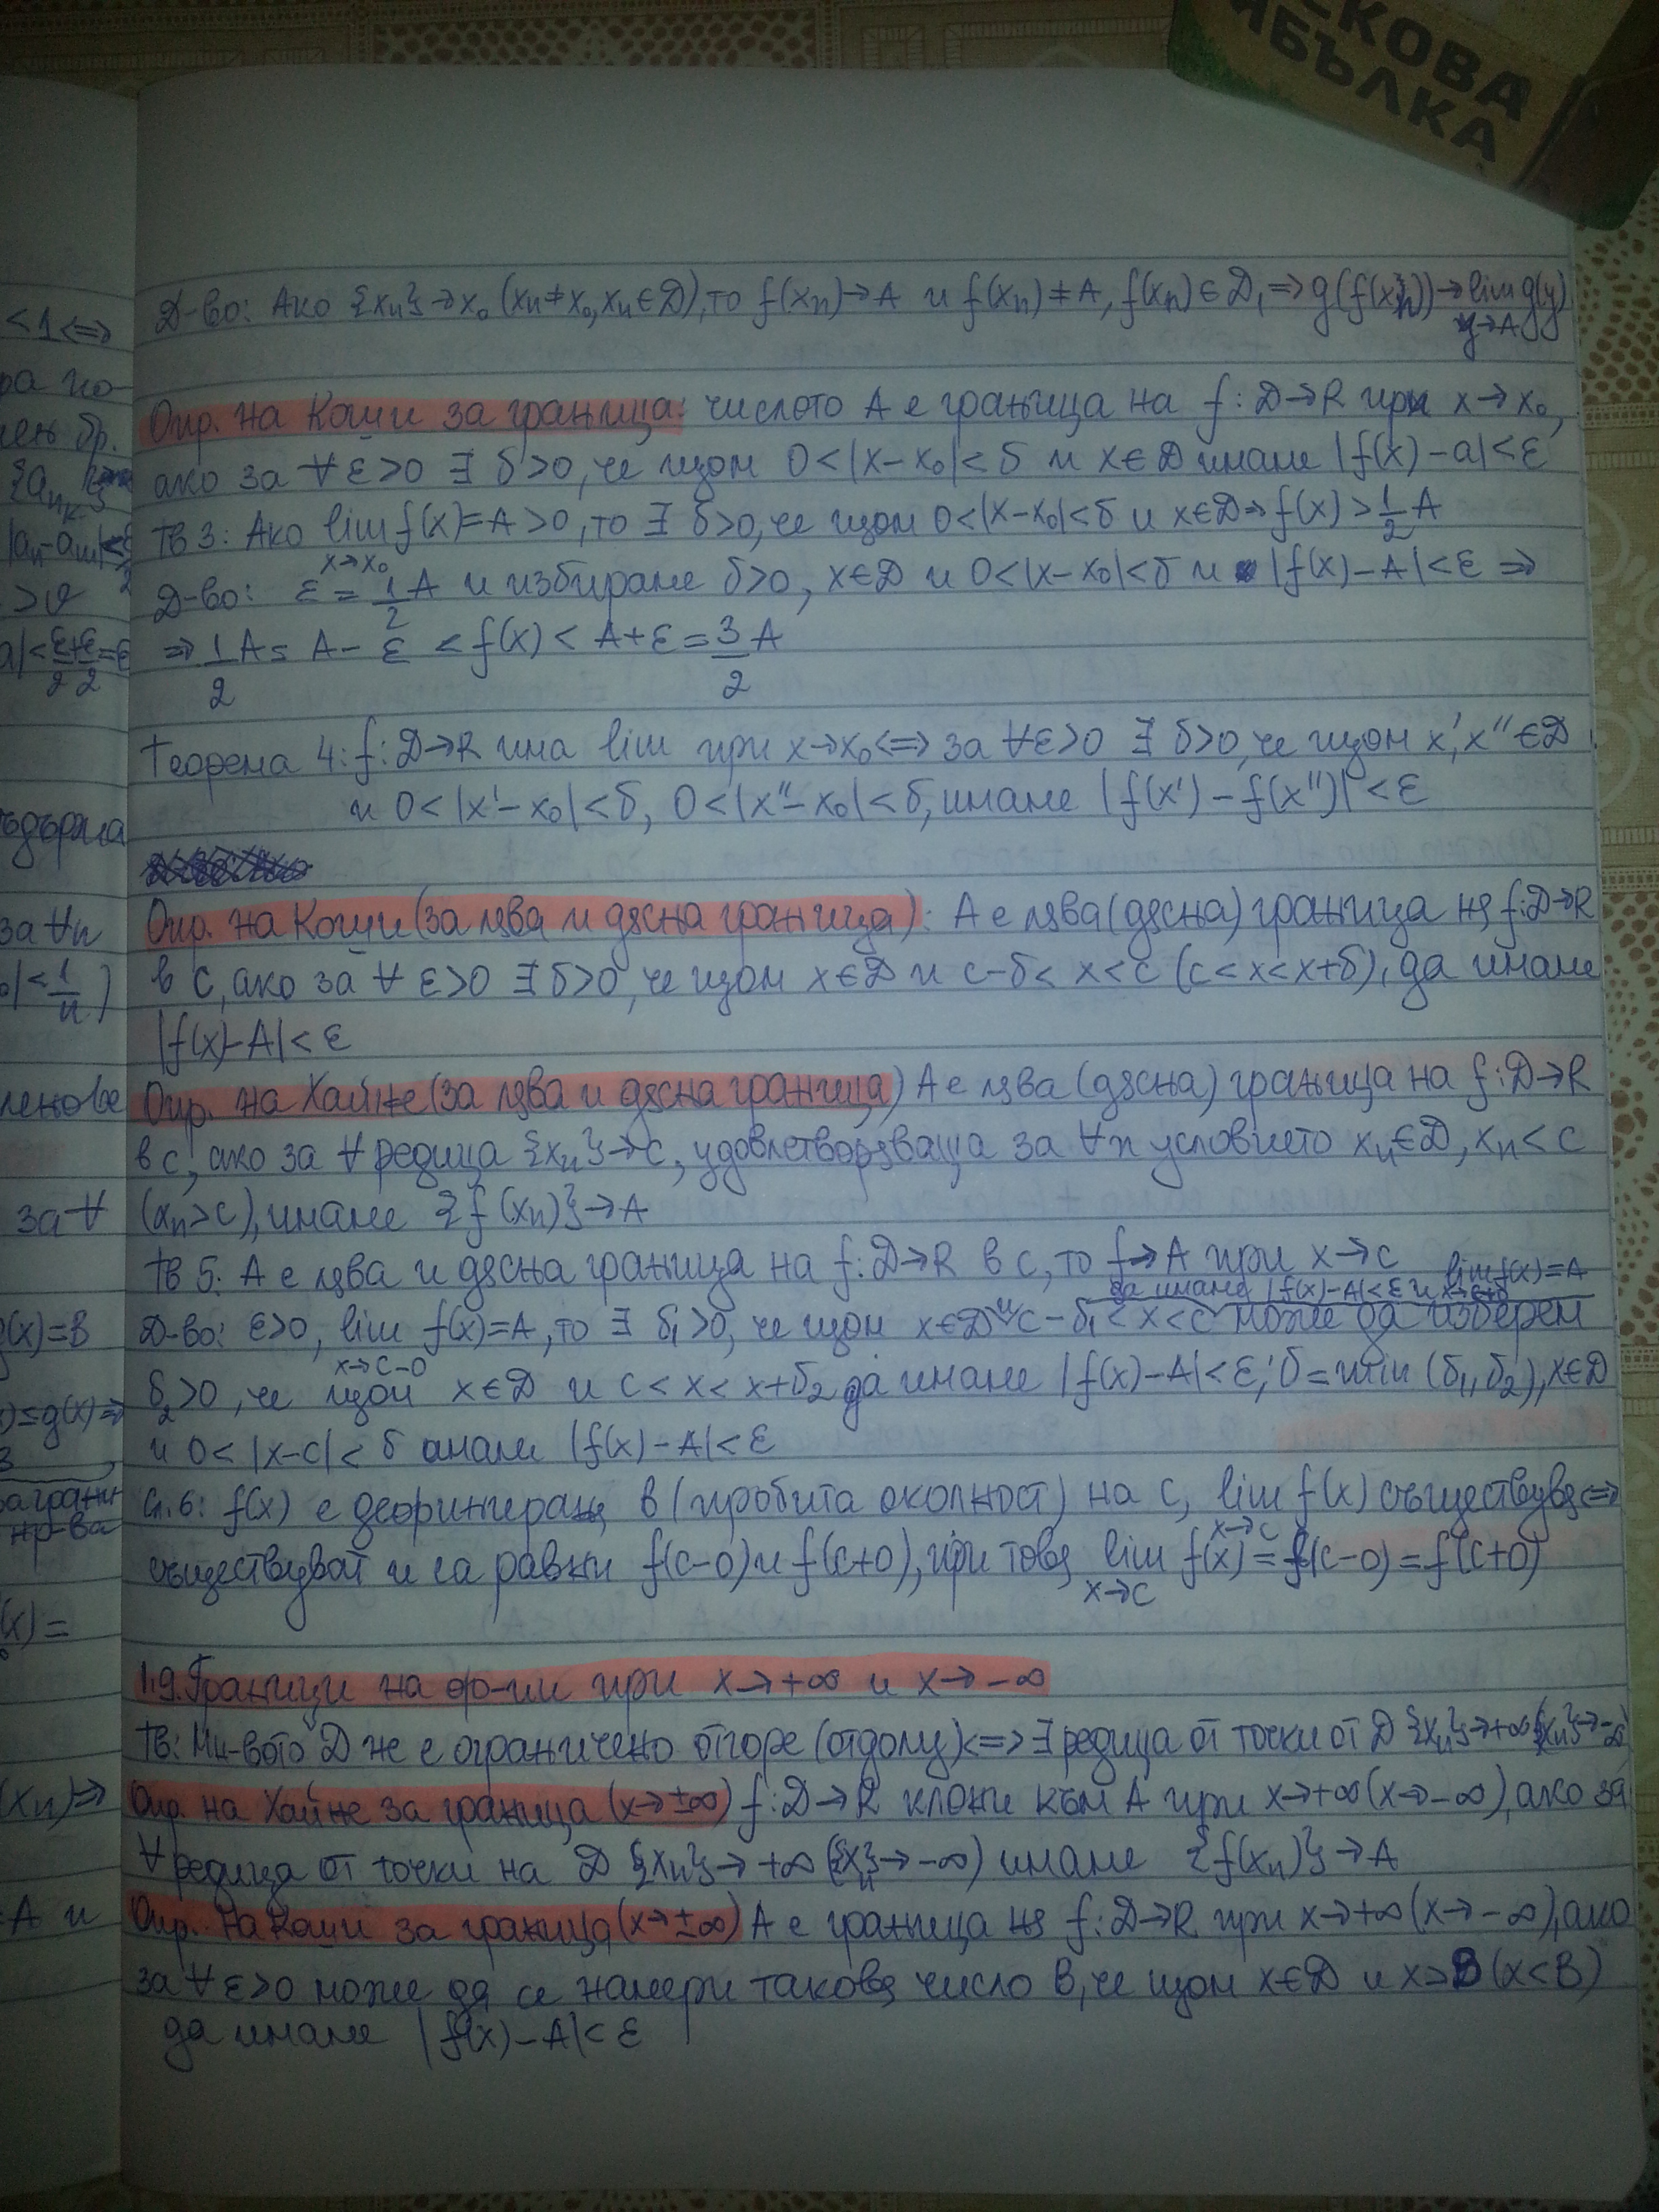 ЕКОВА
ЯБЪЛКА
Д-во: Ако {xn}→x₀ (xn≠x₀, xn∈D), то f(xn)→A и f(xn)≠A, f(xn)∈D₁ ⇒ g(f(xn))→lim g(y)
y→A
Опр. на Коши за граница: числото A е граница на f: D→R при x→x₀,
ако за ∀ε>0 ∃ δ>0, че щом 0<|x-x₀|<δ и x∈D имаме |f(x)-a|<ε
Тв 3: Ако lim f(x)=A>0, то ∃ δ>0, че щом 0<|x-x₀|<δ и x∈D ⇒ f(x)>1/2 A
x→x₀
Д-во: ε=1/2 A и избираме δ>0, x∈D и 0<|x-x₀|<δ и |f(x)-A|<ε ⇒
⇒ 1/2 A = A-ε < f(x) < A+ε = 3/2 A
Теорема 4: f: D→R има lim при x→x₀ ⇔ за ∀ε>0 ∃ δ>0, че щом x', x''∈D
и 0<|x'-x₀|<δ, 0<|x''-x₀|<δ, имаме |f(x')-f(x'')|<ε
Опр. на Коши (за лява и дясна граница): A е лява (дясна) граница на f: D→R
в c, ако за ∀ ε>0 ∃ δ>0, че щом x∈D и c-δ<x<c (c<x<x+δ), да имаме
|f(x)-A|<ε
Опр. на Хайне (за лява и дясна граница) A е лява (дясна) граница на f: D→R
в c, ако за ∀ редица {xn}→c, удовлетворяваща за ∀n условието xn∈D, xn<c
(xn>c), имаме {f(xn)}→A
Тв 5: A е лява и дясна граница на f: D→R в c, то f→A при x→c
да имаме |f(x)-A|<ε и lim f(x)=A
x→c+0
Д-во: ε>0, lim f(x)=A, то ∃ δ₁>0, че щом x∈D и c-δ₁<x<c може да изберем
x→c-0
δ₂>0, че щом x∈D и c<x<x+δ₂ да имаме |f(x)-A|<ε; δ=min(δ₁,δ₂), x∈D
и 0<|x-c|<δ имаме |f(x)-A|<ε
Сл. 6: f(x) е дефинирана в (пробита околност) на c, lim f(x) съществува ⇔
x→c
съществуват и са равни f(c-0) и f(c+0), при това lim f(x)=f(c-0)=f(c+0)
x→c
1.9. Граници на ф-ии при x→+∞ и x→-∞
Тв: Мн-вото D не е ограничено отгоре (отдолу) <=> ∃ редица от точки от D {xn}→+∞ ({xn}→-∞)
Опр. на Хайне за граница (x→±∞) f: D→R клони към A при x→+∞ (x→-∞), ако за
∀ редица от точки на D {xn}→+∞ ({xn}→-∞) имаме {f(xn)}→A
Опр. на Коши за граница (x→±∞) A е граница на f: D→R при x→+∞ (x→-∞), ако
за ∀ ε>0 може да се намери такова число B, че щом x∈D и x>B (x<B)
да имаме |f(x)-A|<ε
<1⇔
за ∀n
ленове
за ∀
g(x)=B
(x)=
(xn)⇒
A и